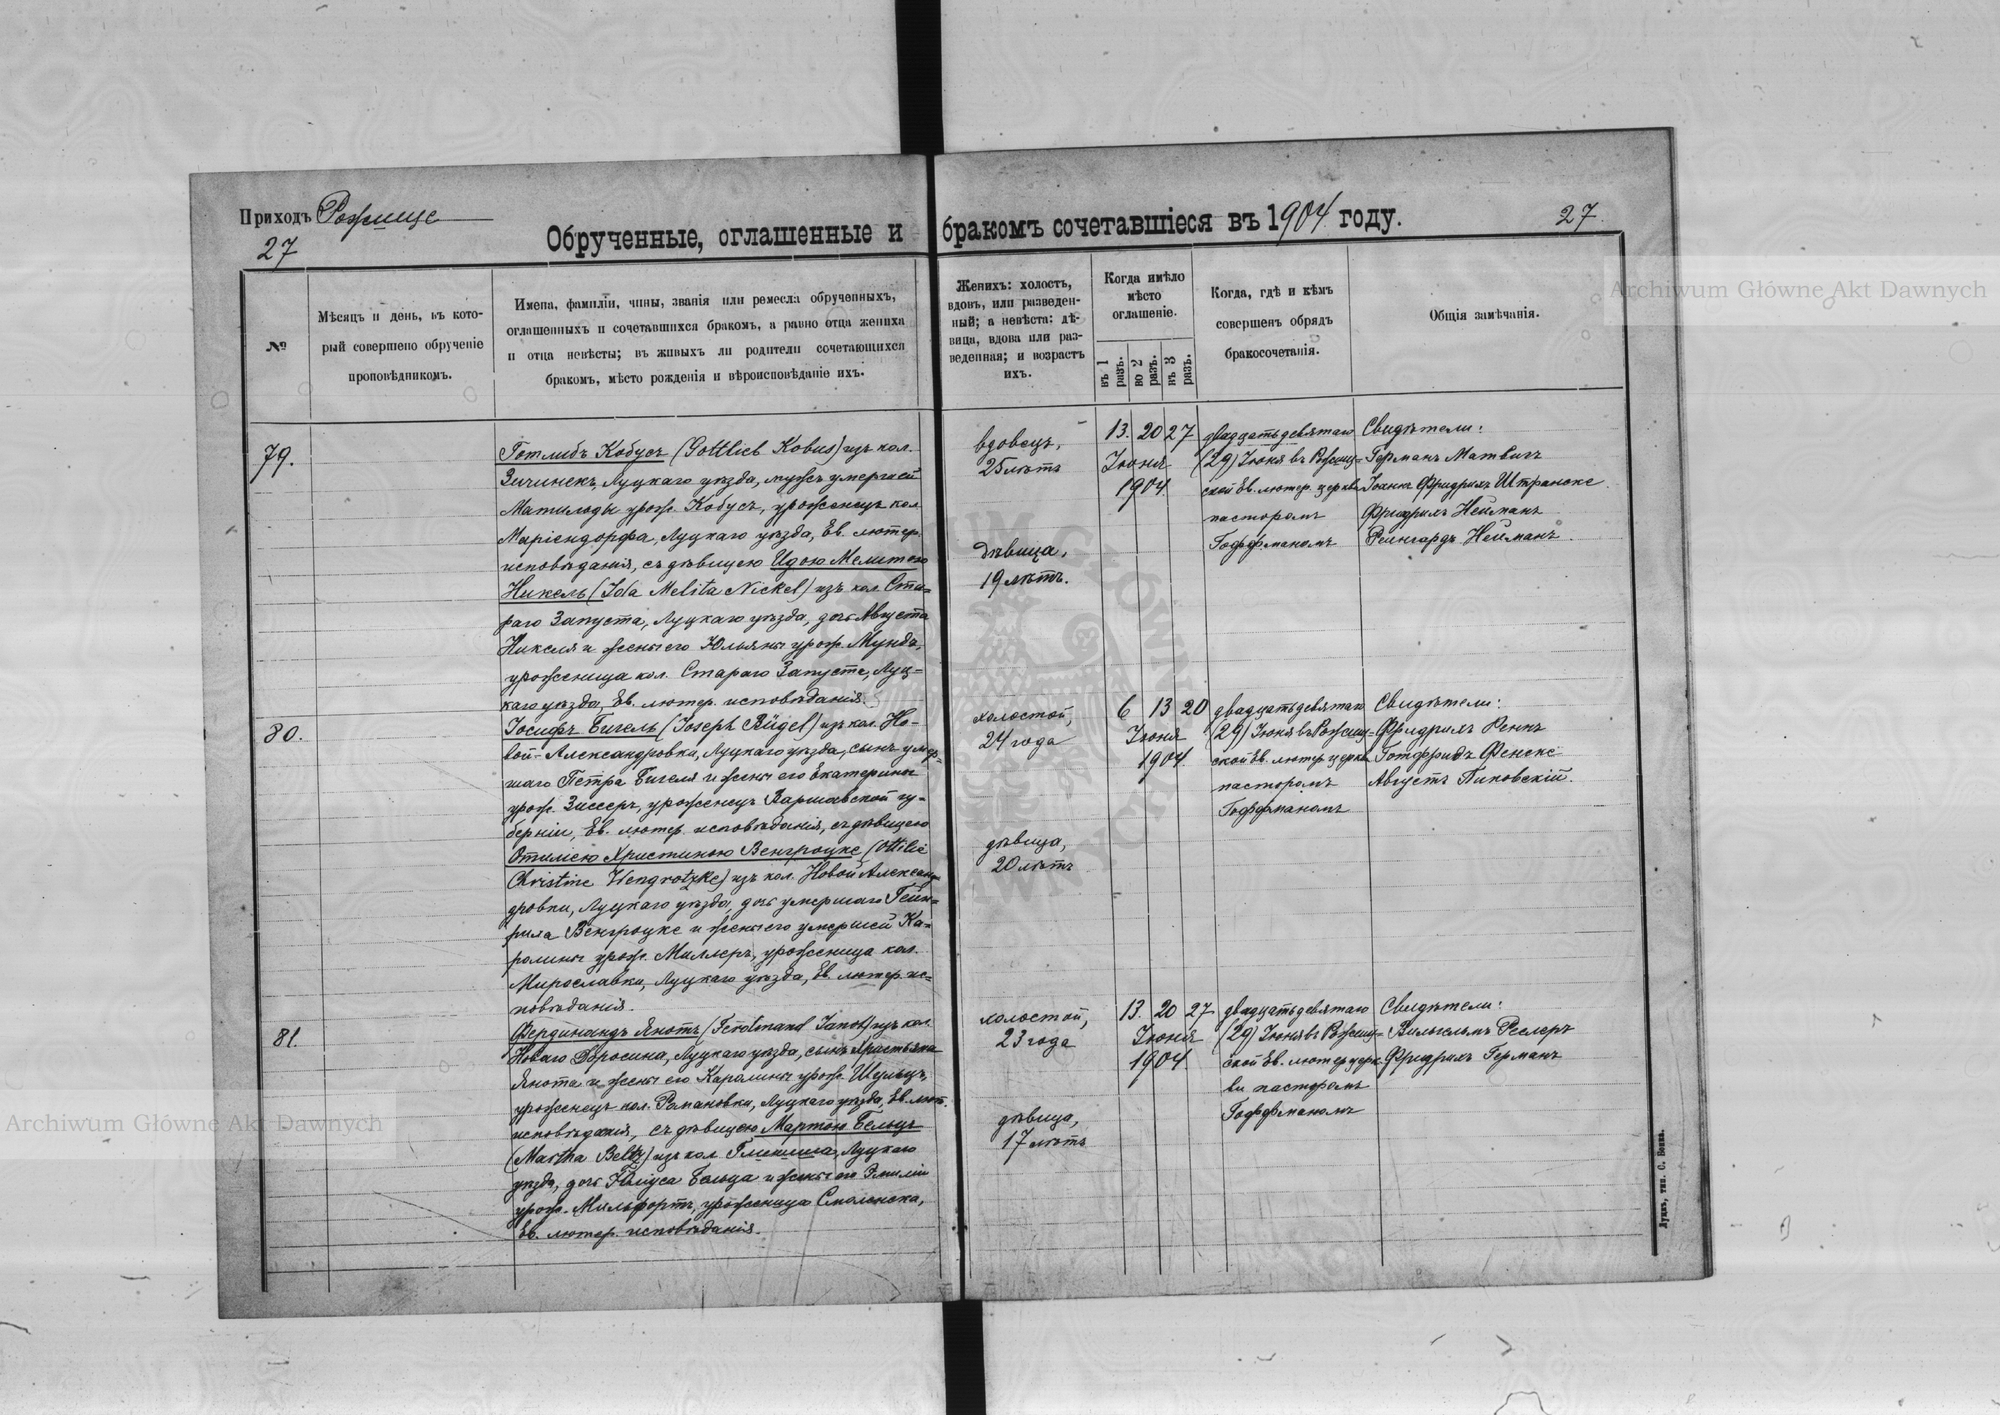 Приходъ Рожище
27
Обрученные, оглашенные и бракомъ сочетавшіеся въ 1904 году.
27.
№
Мѣсяцъ и день, въ кото-
рый совершено обрученіе
проповѣдникомъ.
Имена, фамиліи, чины, званія или ремесла обрученныхъ,
оглашенныхъ и сочетавшихся бракомъ, а равно отца жениха
и отца невѣсты; въ живыхъ ли родители сочетающихся
бракомъ, мѣсто рожденія и вѣроисповѣданіе ихъ.
Женихъ: холостъ,
вдовъ, или разведен-
ный; а невѣста: дѣ-
вица, вдова или раз-
веденная; и возрастъ
ихъ.
Когда имѣло
мѣсто
оглашеніе.
въ 1 разъ.
во 2 разъ.
въ 3 разъ.
Когда, гдѣ и кѣмъ
совершенъ обрядъ
бракосочетанія.
Общія замѣчанія.
79.
Готлибъ Кобусъ (Gottlieb Kobus) изъ кол.
Зичинекъ, Луцкаго уѣзда, мужъ умершей
Матильды урож. Кобусъ, уроженецъ кол.
Маріендорфа, Луцкаго уѣзда, Ев. лютер.
исповѣданія, съ дѣвицею Идою Мелитою
Никель (Ida Melita Nickel) изъ кол. Ста-
раго Запуста, Луцкаго уѣзда, дочь Августа
Никеля и жены его Юльяны урож. Мунда,
уроженица кол. Стараго Запуста, Луц-
каго уѣзда, Ев. лютер. исповѣданія.
вдовецъ,
25 лѣтъ
дѣвица,
19 лѣтъ.
13. 20 27
Іюня
1904.
двадцатьдевятаго
(29) Іюня въ Рожищ-
ской Ев. лютер. церкви
пасторомъ
Гоффманомъ
Свидѣтели:
Германъ Матвигъ
Іоганъ Фридрихъ Штранске.
Фридрихъ Нейманъ
Рейнгардъ Нейманъ.
80.
Іосифъ Бигель (Joseph Bügel) изъ кол. Но-
вой-Александровки, Луцкаго уѣзда, сынъ умер-
шаго Петра Бигеля и жены его Екатерины
урож. Зиссеръ, уроженецъ Варшавской гу-
берніи, Ев. лютер. исповѣданія, съ дѣвицею
Отилiею Христиною Венгроцке (Ottilie
Christine Wengrotzke) изъ кол. Новой Алексан-
дровки, Луцкаго уѣзда, дочь умершаго Гейн-
риха Венгроцке и жены его умершей Ка-
ролины урож. Миллеръ, уроженица кол.
Мирославки, Луцкаго уѣзда, Ев. лютер. ис-
повѣданія.
холостой,
24 года
дѣвица,
20 лѣтъ
6 13 20
Іюня
1904
двадцатьдевятаго
(29) Іюня въ Рожищ-
ской Ев. лютер. церкви
пасторомъ
Гоффманомъ
Свидѣтели:
Фридрихъ Реннъ
Готфридъ Фенске
Августъ Пиковскій.
81.
Фердинандъ Янотъ (Ferdinand Janot) изъ кол.
Новаго Воросина, Луцкаго уѣзда, сынъ Христьяна
Янота и жены его Каролины урож. Шульцъ,
уроженецъ кол. Романовки, Луцкаго уѣзда, Ев. лют.
исповѣданія, съ дѣвицею Мартою Бельцъ
(Martha Beltz) изъ кол. Глинища, Луцкаго
уѣзда, дочь Юліуса Бельца и жены его Эмиліи
урож. Мильфортъ, уроженица Смоленска,
Ев. лютер. исповѣданія.
холостой,
23 года
дѣвица,
17 лѣтъ
13. 20 27
Іюня
1904
двадцатьдевятаго
(29) Іюня въ Рожищ-
ской Ев. лютер. церк-
ви пасторомъ
Гоффманомъ
Свидѣтели:
Вильгельмъ Реслеръ
Фридрихъ Германъ
Луцкъ, тип. С. Бонка.
Archiwum Główne Akt Dawnych
Archiwum Główne Akt Dawnych